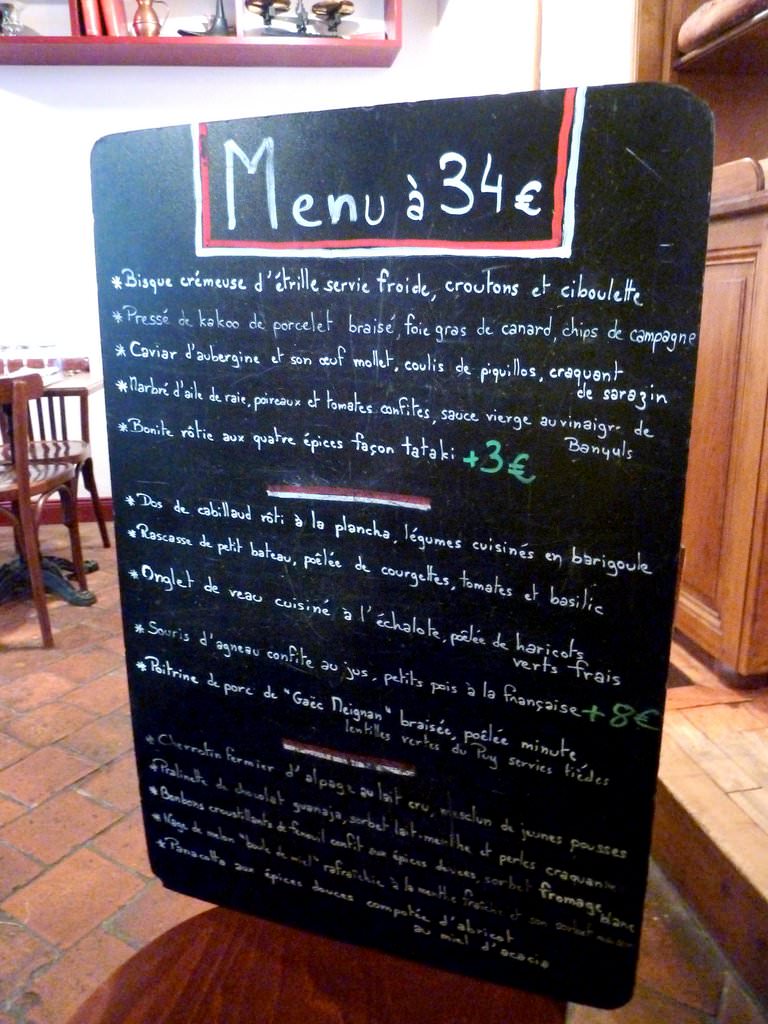 Menu à 34€
*Bisque crémeuse d'étrille servie froide, croutons et ciboulette
*Pressé de kakoo de porcelet braisé, foie gras de canard, chips de campagne
*Caviar d'aubergine et son œuf mollet, coulis de piquillos, craquant
de sarazin
*Marbré d'aile de raie, poireaux et tomates confites, sauce vierge au vinaigr- de
Banyuls
*Bonite rôtie aux quatre épices façon tataki +3€
*Dos de cabillaud rôti à la plancha, légumes cuisinés en barigoule
*Rascasse de petit bateau, poêlée de courgettes, tomates et basilic
*Onglet de veau cuisiné à l'échalote, poêlée de haricots
verts frais
*Souris d'agneau confite au jus, petits pois à la française +8€
*Poitrine de porc de "Gaëc Meignan" braisée, poêlée minute
lentilles vertes du Puy servies tièdes
*Cherrotin fermier d'alpage au lait cru, mesclun de jeunes pousses
*Pralinette de chocolat guanaja, sorbet lait-menthe et perles craquante
*Bonbons croustillants de fenouil confit aux épices douces, sorbet fromage blanc
*Nage de melon "boule de miel" rafraîchie à la menthe fraîche et son sorbet
*Panacotta aux épices douces compotée d'abricot
au miel d'acacia